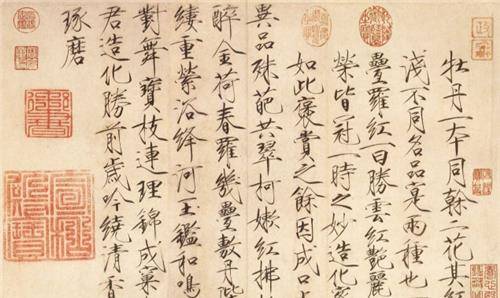 牡丹一本同榦二花其紅
淺不同名品寔兩種也
疊羅紅一曰勝雲紅艷麗
榮皆冠一時之妙造化密
如此褒賞之餘因成口占
異品殊葩共翠柯嫩紅拂
醉金荷春羅幾疊敷丹陛
縷重縈浴絳河玉鑑和鳴
對舞寶枝連理錦成窠
君造化勝前歲吟繞清香
琢磨